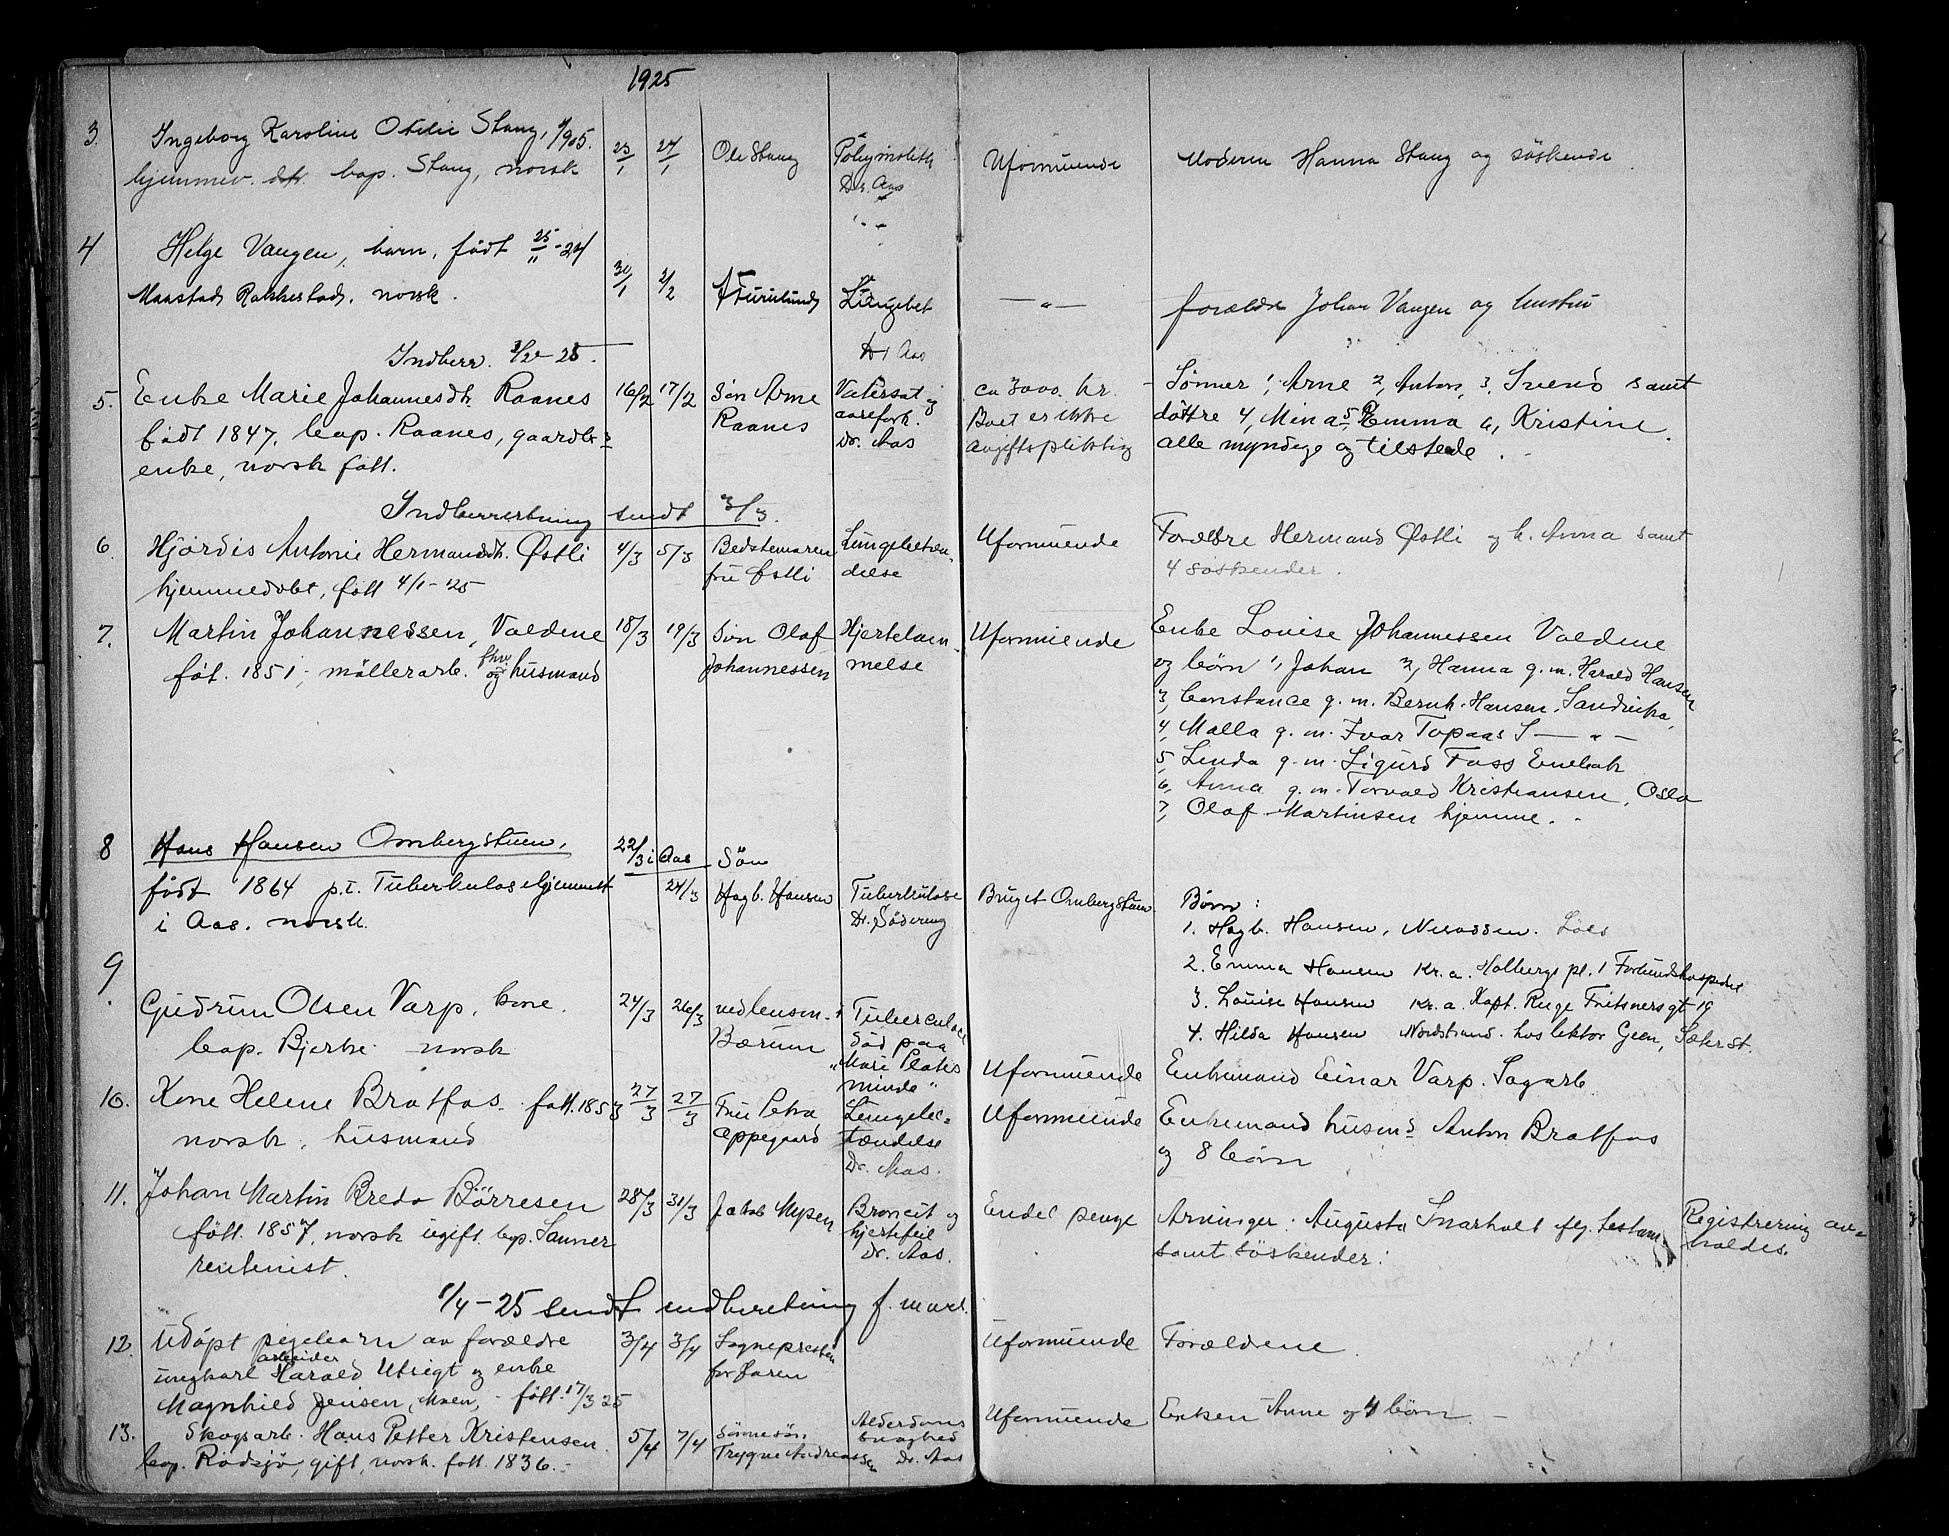 1925
3. Ingeborg Karoline Otelie Stang, 1905.
hjemmev. dtr. bop. Stang, norsk
23/1 24/1 Ole Stang
Dr. Aas
Uformuende
Moderen Hanna Stang og söskende
4 Helge Vangen, barn, født 25/11-24
Maastad Rakkestad. norsk.
30/1 2/2
Lungebet
Dr Aas
— " —
forældre Johan Vangen og hustru
Indberr. 3/2-25.
5. Enke Marie Johannesdtr. Raanes
født 1847, bop. Raanes, gaardbr.
enke, norsk født.
16/2 17/2 Søn Arne
Raanes
Vatersot og
aarefork.
Dr. Aas
ca 3000 kr.
Boet er ikke
avgiftspliktig
Sönner 1, Arne 2, Anton, 3, Svend samt
döttre 4, Mina 5, Emma 6, Kristine.
alle myndige og tilstede.
Indberretning sendt 3/3.
6. Hjördis Antonie Hermandsdtr. Østli
hjemmedøbt, født 4/1-25
4/3 5/3 Bedstemoren
fru Østli
Lungebetæn-
delse
Uformuende
Forældre Hermand Østli og h. Anna samt
4 söskender.
7. Martin Johannessen, Valdene
föt. 1851, möllerarb. fhv. og husmand
18/3 19/3 Søn Olaf
Johannessen
Hjertelam-
melse
Uformuende
Enke Louise Johannessen Valdene
og börn 1, Johan 2, Hanna g.m. Harald Hansen
3, Constance g.m. Bernh. Hansen,
4, Malla g.m. Ivar Topaas S — " —
5, Linda g.m. Sigurd Foss Enebak
6, Anna g.m. Torvald Kristiansen, Oslo
7, Olaf Martinsen hjemme.
8 Hans Hansen Ombergstuen,
født 1864 p.t. Tuberkulosehjemmet
i Aas. norsk.
22/3 i Aas
24/3
Sön
Hagb. Hansen
Tuberkulose
Dr. Södering
Bruget Ombergstuen
Börn:
1. Hagb. Hansen, Nesodden.
2. Emma Hansen Kr.a. Holbergs pl. 1
3. Louise Hansen Kr.a. Kapt. Ruge Fritsnersgt 19
4. Hilda Hansen Nordstrand. hos lektor Geen, Sæterst.
9. Gudrun Olsen Varp, kone.
bop. Bjerke norsk
24/3 26/3 ved lensm. i
Bærum
Tuberculose
död paa
"Mari Plates
minde"
Uformuende
Enkemand Einar Varp. Sagarb.
10. Kone Helene Bratfos. født. 1853
norsk, husmand
27/3 27/3 Fru Petra
Oppegaard
Lungebe-
tændelse
Dr. Aas.
Uformuende
Enkemand husmd Anton Bratfos
og 8 börn
11. Johan Martin Bredo Börresen
født. 1857, norsk ugift bop. Sanner
rentenist.
28/3 31/3 Jakob Mysen
Bronsit og
hjertefeil
Dr. Aas.
Endel penge
Arvinger. Augusta Snarholt flg. testam.
samt söskender.
Registrering av-
holdes.
1/4-25 sendt indberetning f. mars.
12. Udöpt pigebarn av forældre
ungkarl arbeider Harald Utsigt og enke
Magnhild Jensen, Moen, - født. 17/3 25
3/4 3/4 Sognepresten
for faren
Uformuende
Forældrene.
13. Skogsarb. Hans Petter Kristensen.
bop. Rödsjö, gift, norsk. født. 1836.
5/4 7/4 Sönnesön
Trygve Andreassen
Alderdoms
svaghed
Dr. Aas
Uformuende
Enken Anne og 4 börn.